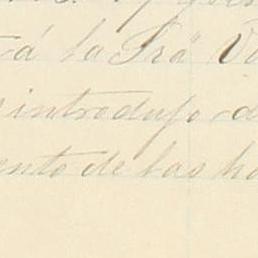 tá la Sra V
introdujo d
ento de las ha